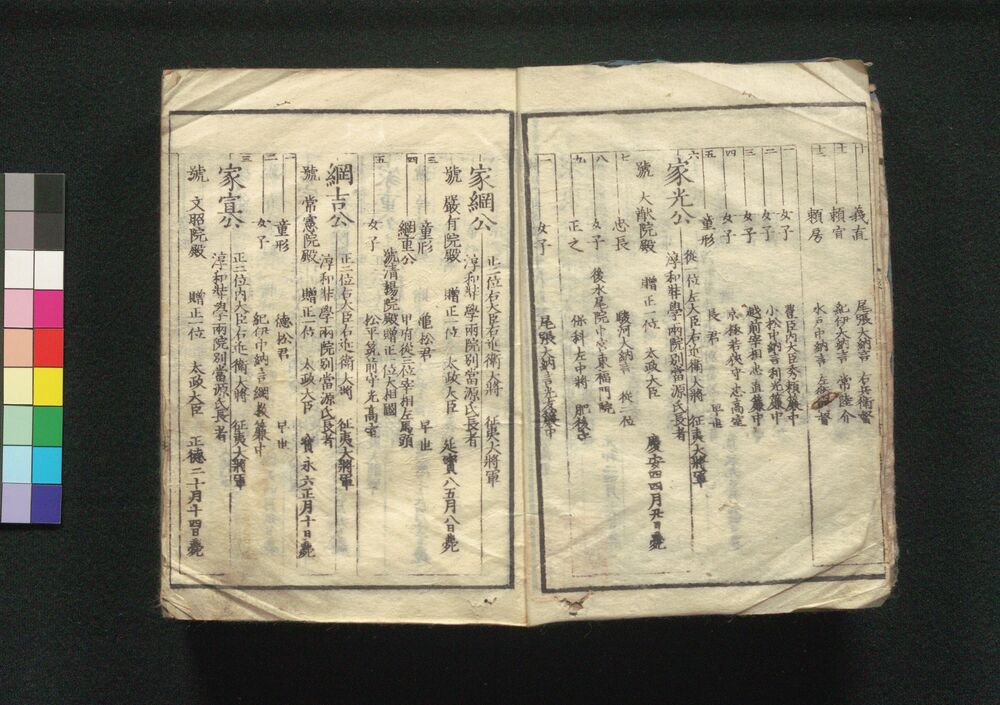 十 義直 尾張大納言 右兵衛督
十一 頼宣 紀伊大納言 常陸介
十二 頼房 水戸中納言 左衛門督
一 女子 豊臣内大臣秀頼簾中
二 女子 小松中納言利光簾中
三 女子 越前宰相忠直簾中
四 女子 京極若狭守忠高室
五 童形 長君 早世
六 家光公 從一位左大臣右近衛大将 征夷大將軍
淳和弉學兩院別當源氏長者
號 大猷院殿 贈正一位 太政大臣 慶安四四月廿日薨
七 忠長 駿河大納言 從二位
八 女子 後水尾院中宮東福門院
九 正之 保科左中將 肥後守
一 女子 尾張大納言光友簾中
家綱公 正二位右大臣右近衛大將 征夷大將軍
淳和弉學兩院別當源氏長者
號 嚴有院殿 贈正一位 太政大臣 延寶八五月八日薨
三 童形 亀松君 早世
四 綱重公 甲府從三位宰相左馬頭
號清揚院殿贈正一位太相國
五 女子 松平筑前守光高室
綱吉公 正二位右大臣右近衛大將 征夷大將軍
淳和弉學兩院別當源氏長者
號 常憲院殿 贈正一位 太政大臣 寶永六正月十日薨
一 童形 徳松君 早世
二 女子 紀伊中納言綱教簾中
三 家宣公 正二位内大臣右近衛大將 征夷大將軍
淳和弉學兩院別當源氏長者
號 文昭院殿 贈正一位 太政大臣 正徳二十月十四日薨